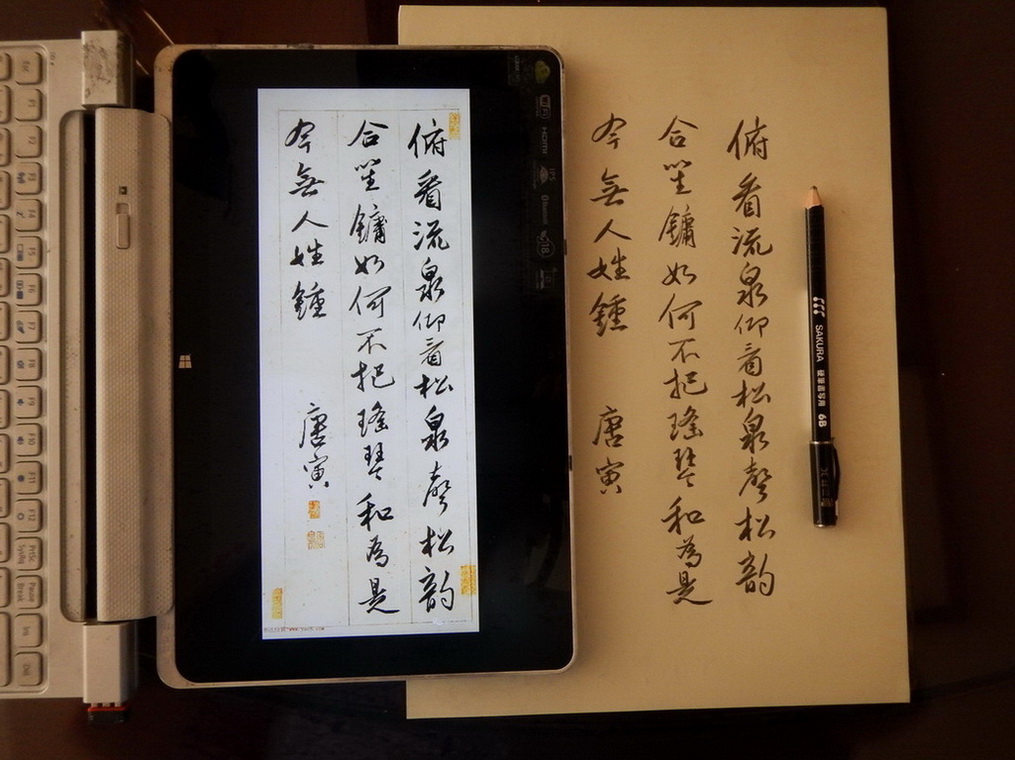 俯看流泉仰看松泉聲松韵
合笙鏞如何不把瑤琴和為是
今無人姓鍾
唐寅
俯看流泉仰看松泉聲松韵
合笙鏞如何不把瑤琴和為是
今無人姓鍾
唐寅
SAKURA 6B